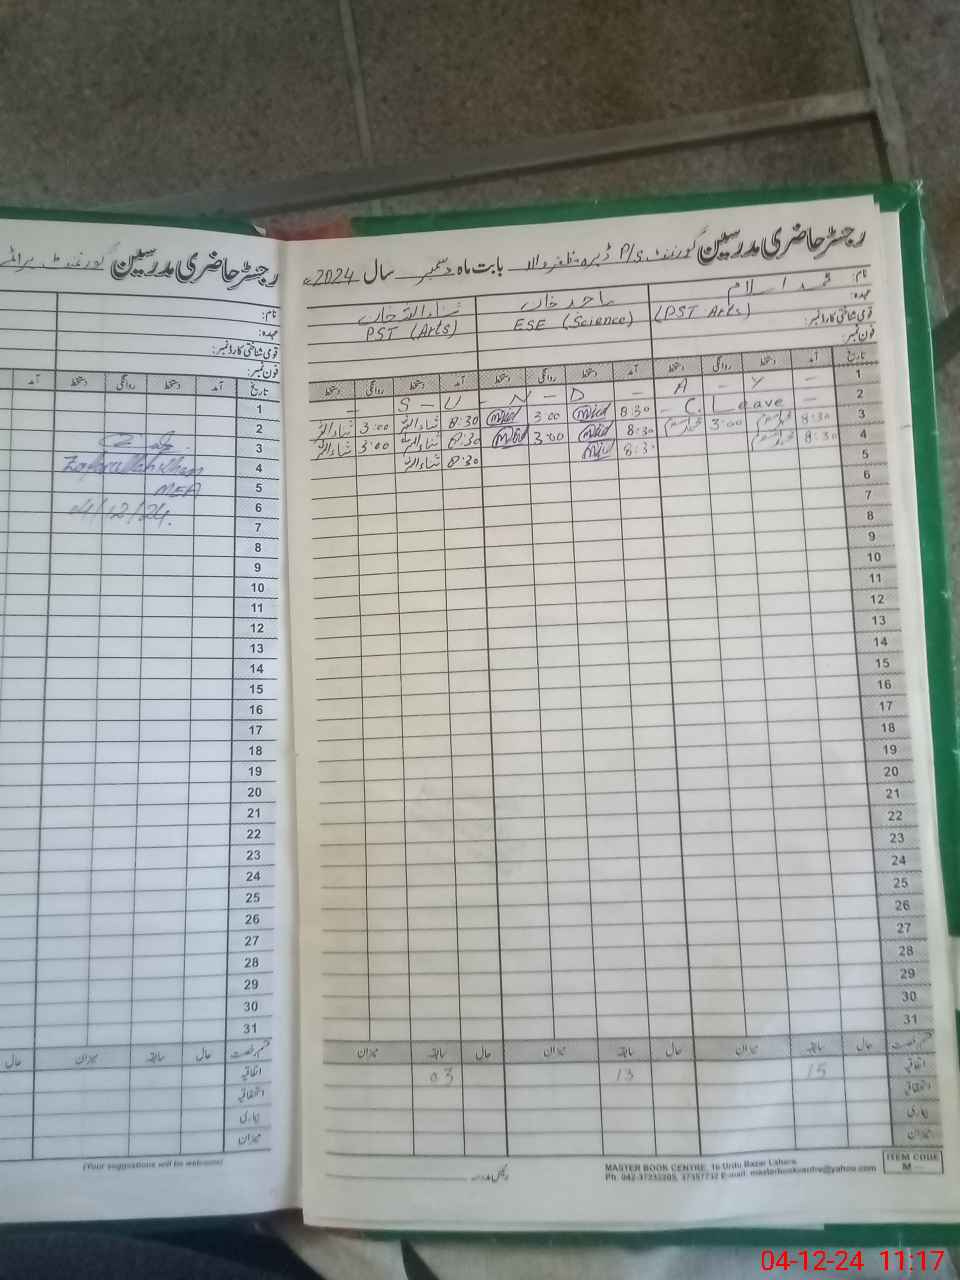 رجسٹر حاضری مدرسین گورنمنٹ P/s ڈیرہ ظفر والا بابت ماہ دسمبر سال 2024ء
نام: محمد اسلام ساجد خان ثناء اللہ خان
عہدہ: (PST Arts) ESE (Science) PST (Arts)
قومی شناختی کارڈ نمبر:
فون نمبر:
تاریخ آمد دستخط روانگی دستخط آمد دستخط روانگی دستخط آمد دستخط روانگی دستخط
1 - S - U - N - D - A - Y -
2 - C. Leave - 8:30 3:00 8:30 ثناء اللہ 3:00 ثناء اللہ
3 8:30 3:00 8:30 3:00 8:30 ثناء اللہ 3:00 ثناء اللہ
4 8:30 8:30 8:30 ثناء اللہ
5
6
7
8
9
10
11
12
13
14
15
16
17
18
19
20
21
22
23
24
25
26
27
28
29
30
31
قسم رخصت حال سابقہ میزان حال سابقہ میزان حال سابقہ میزان
اتفاقیہ 15 13 03
استحقاقیہ
بیماری
میزان
رئیس مدرسہ
MASTER BOOK CENTRE, 16 Urdu Bazar Lahore.
Ph. 042-37232205, 37357732 E-mail: masterbookcentre@yahoo.com
ITEM CODE
M—
رجسٹر حاضری مدرسین گورنمنٹ
نام:
عہدہ:
قومی شناختی کارڈ نمبر:
فون نمبر:
تاریخ آمد دستخط روانگی دستخط آمد
1
2
3
4 Zafarullah Khan
5 MEA
6 04/12/24.
7
8
9
10
11
12
13
14
15
16
17
18
19
20
21
22
23
24
25
26
27
28
29
30
31
قسم رخصت حال سابقہ میزان حال
اتفاقیہ
استحقاقیہ
بیماری
میزان
(Your suggestions will be welcome)
04-12-24 11:17